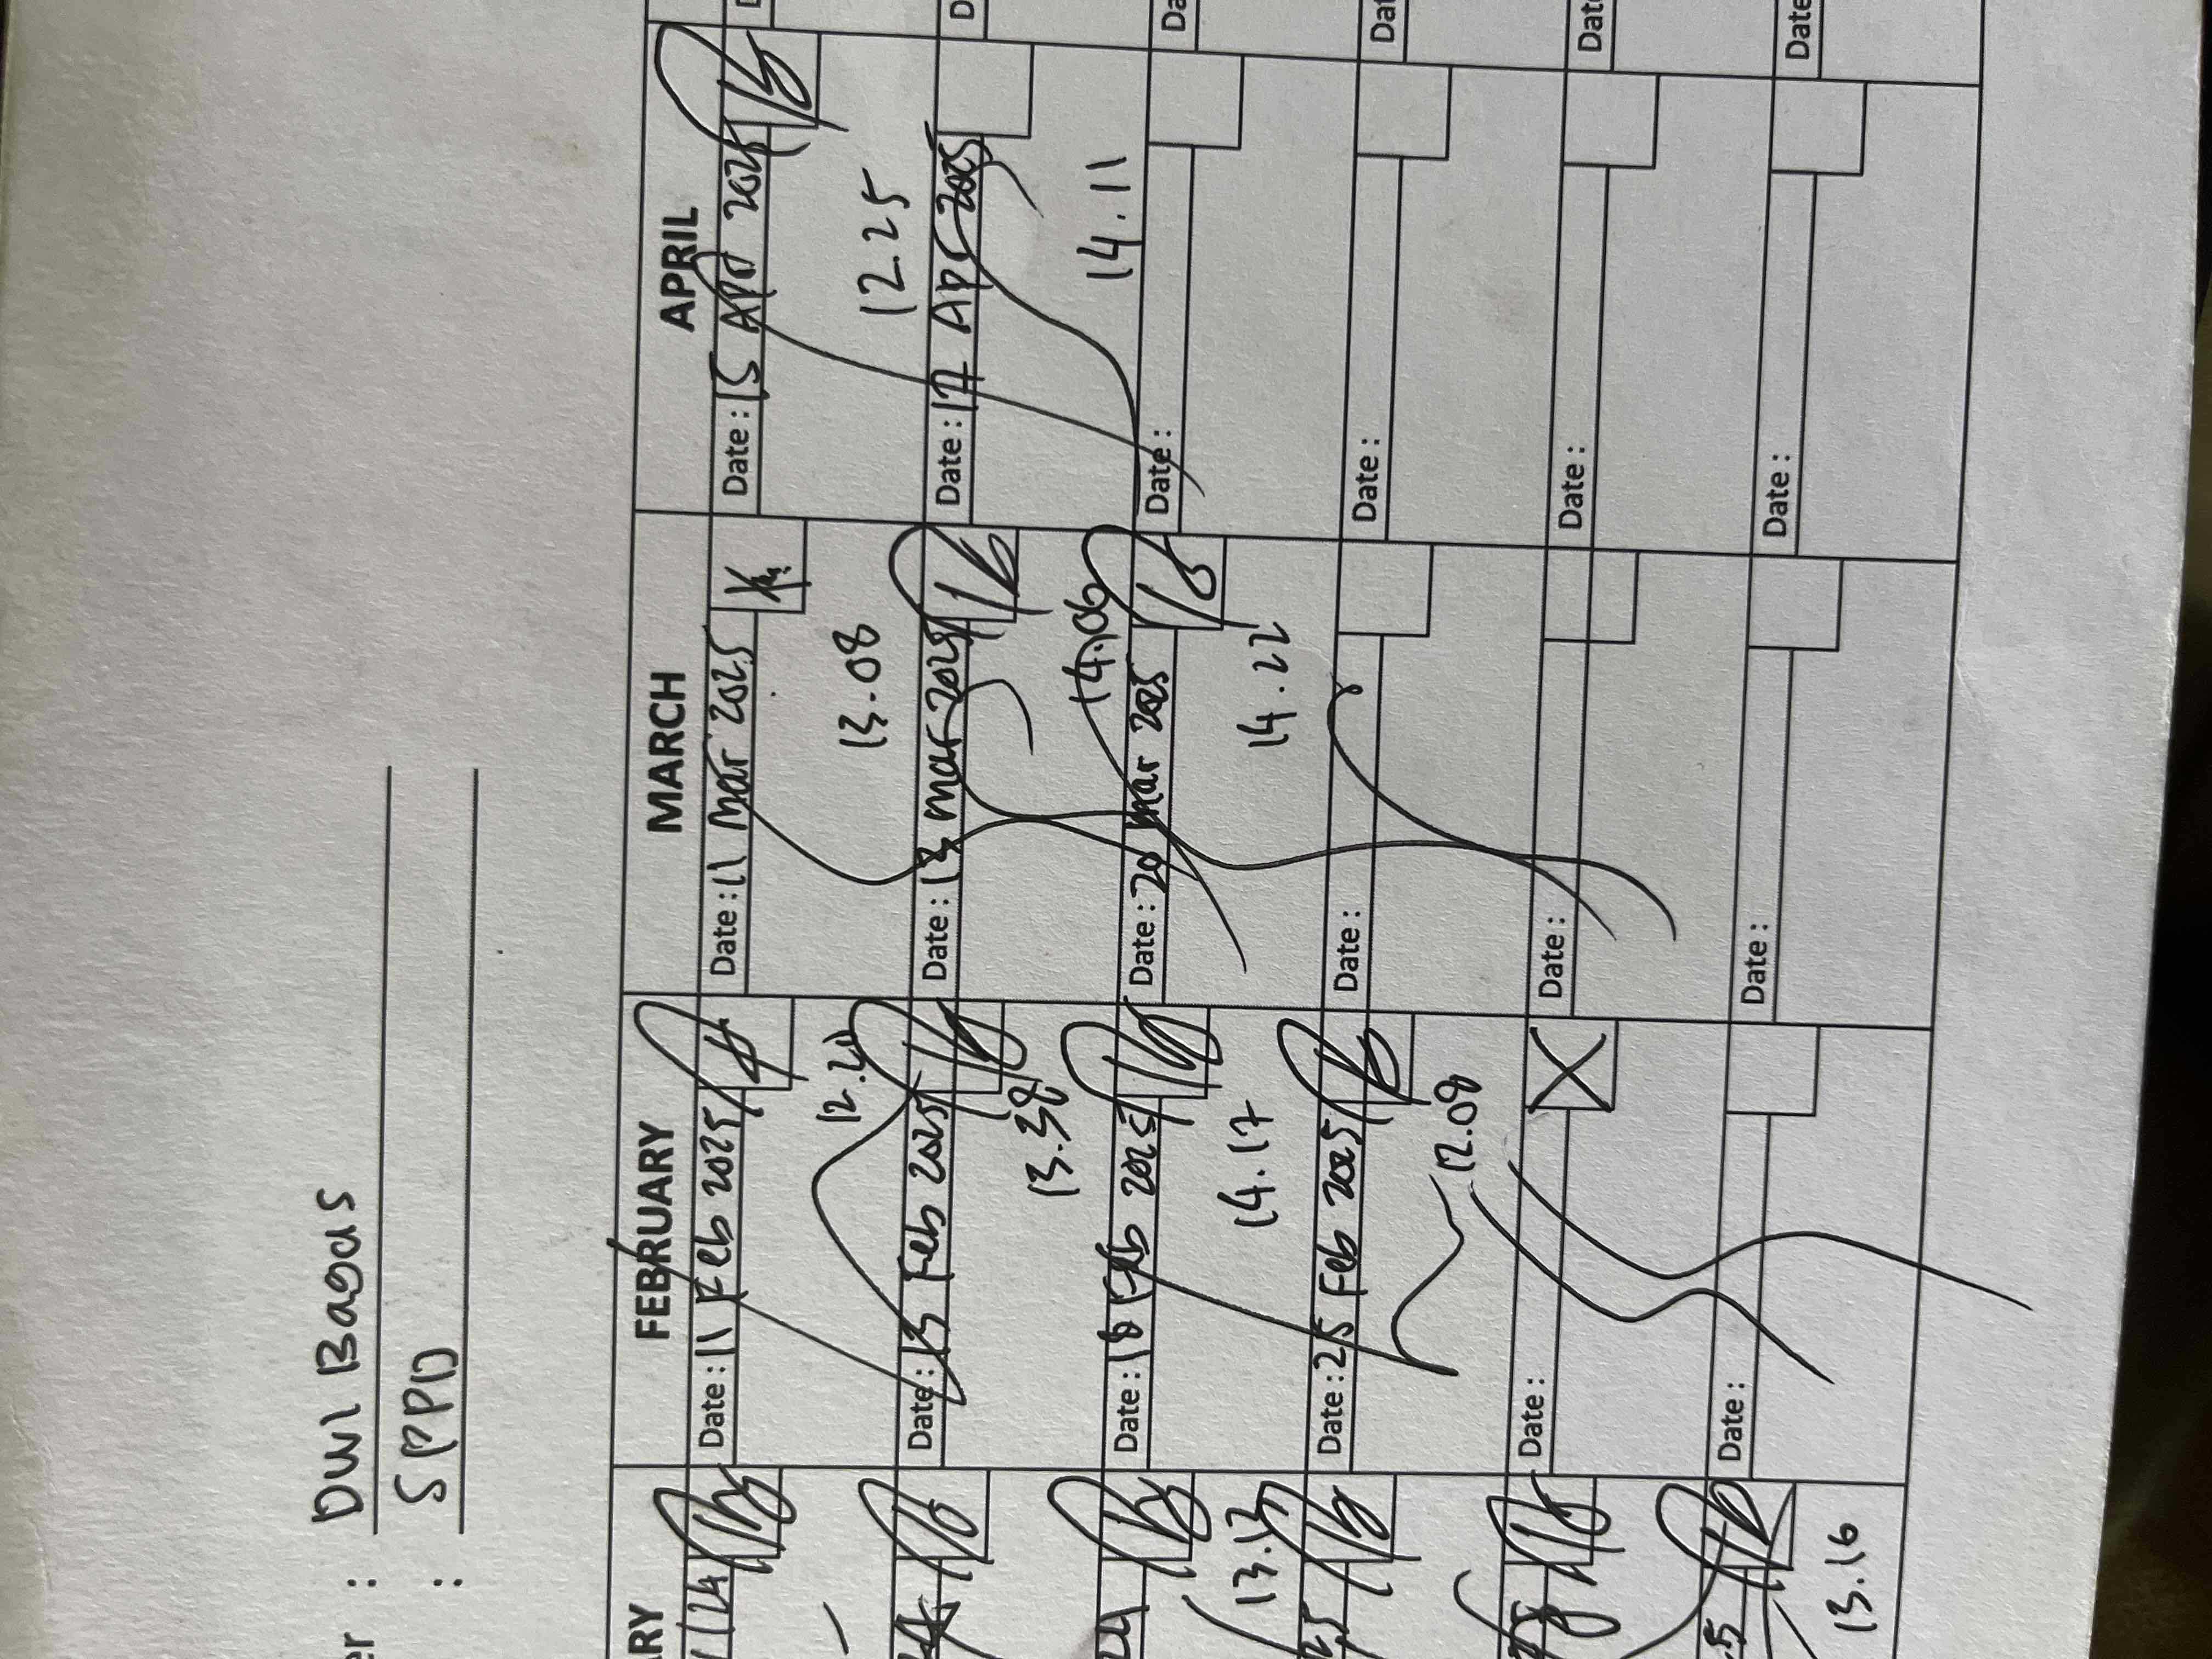 er : DWI Bagus
: SPPD
ARY
/24
24
13.13
25
5
13.16
FEBRUARY
Date : 11 Feb 2025
Date : 13 Feb 2025
13.38
Date : 18 Feb 2025
14.17
Date : 25 Feb 2025
12.08
Date :
Date :
MARCH
Date : 11 Mar 2025
13.08
Date : 13 mar 2025
14.06
Date : 20 mar 2025
14.22
Date :
Date :
Date :
APRIL
Date : 15 Apr 2025
12.25
Date : 17 Apr 2025
14.11
Date :
Date :
Date :
Date :
D
D
Da
Dat
Dat
Date